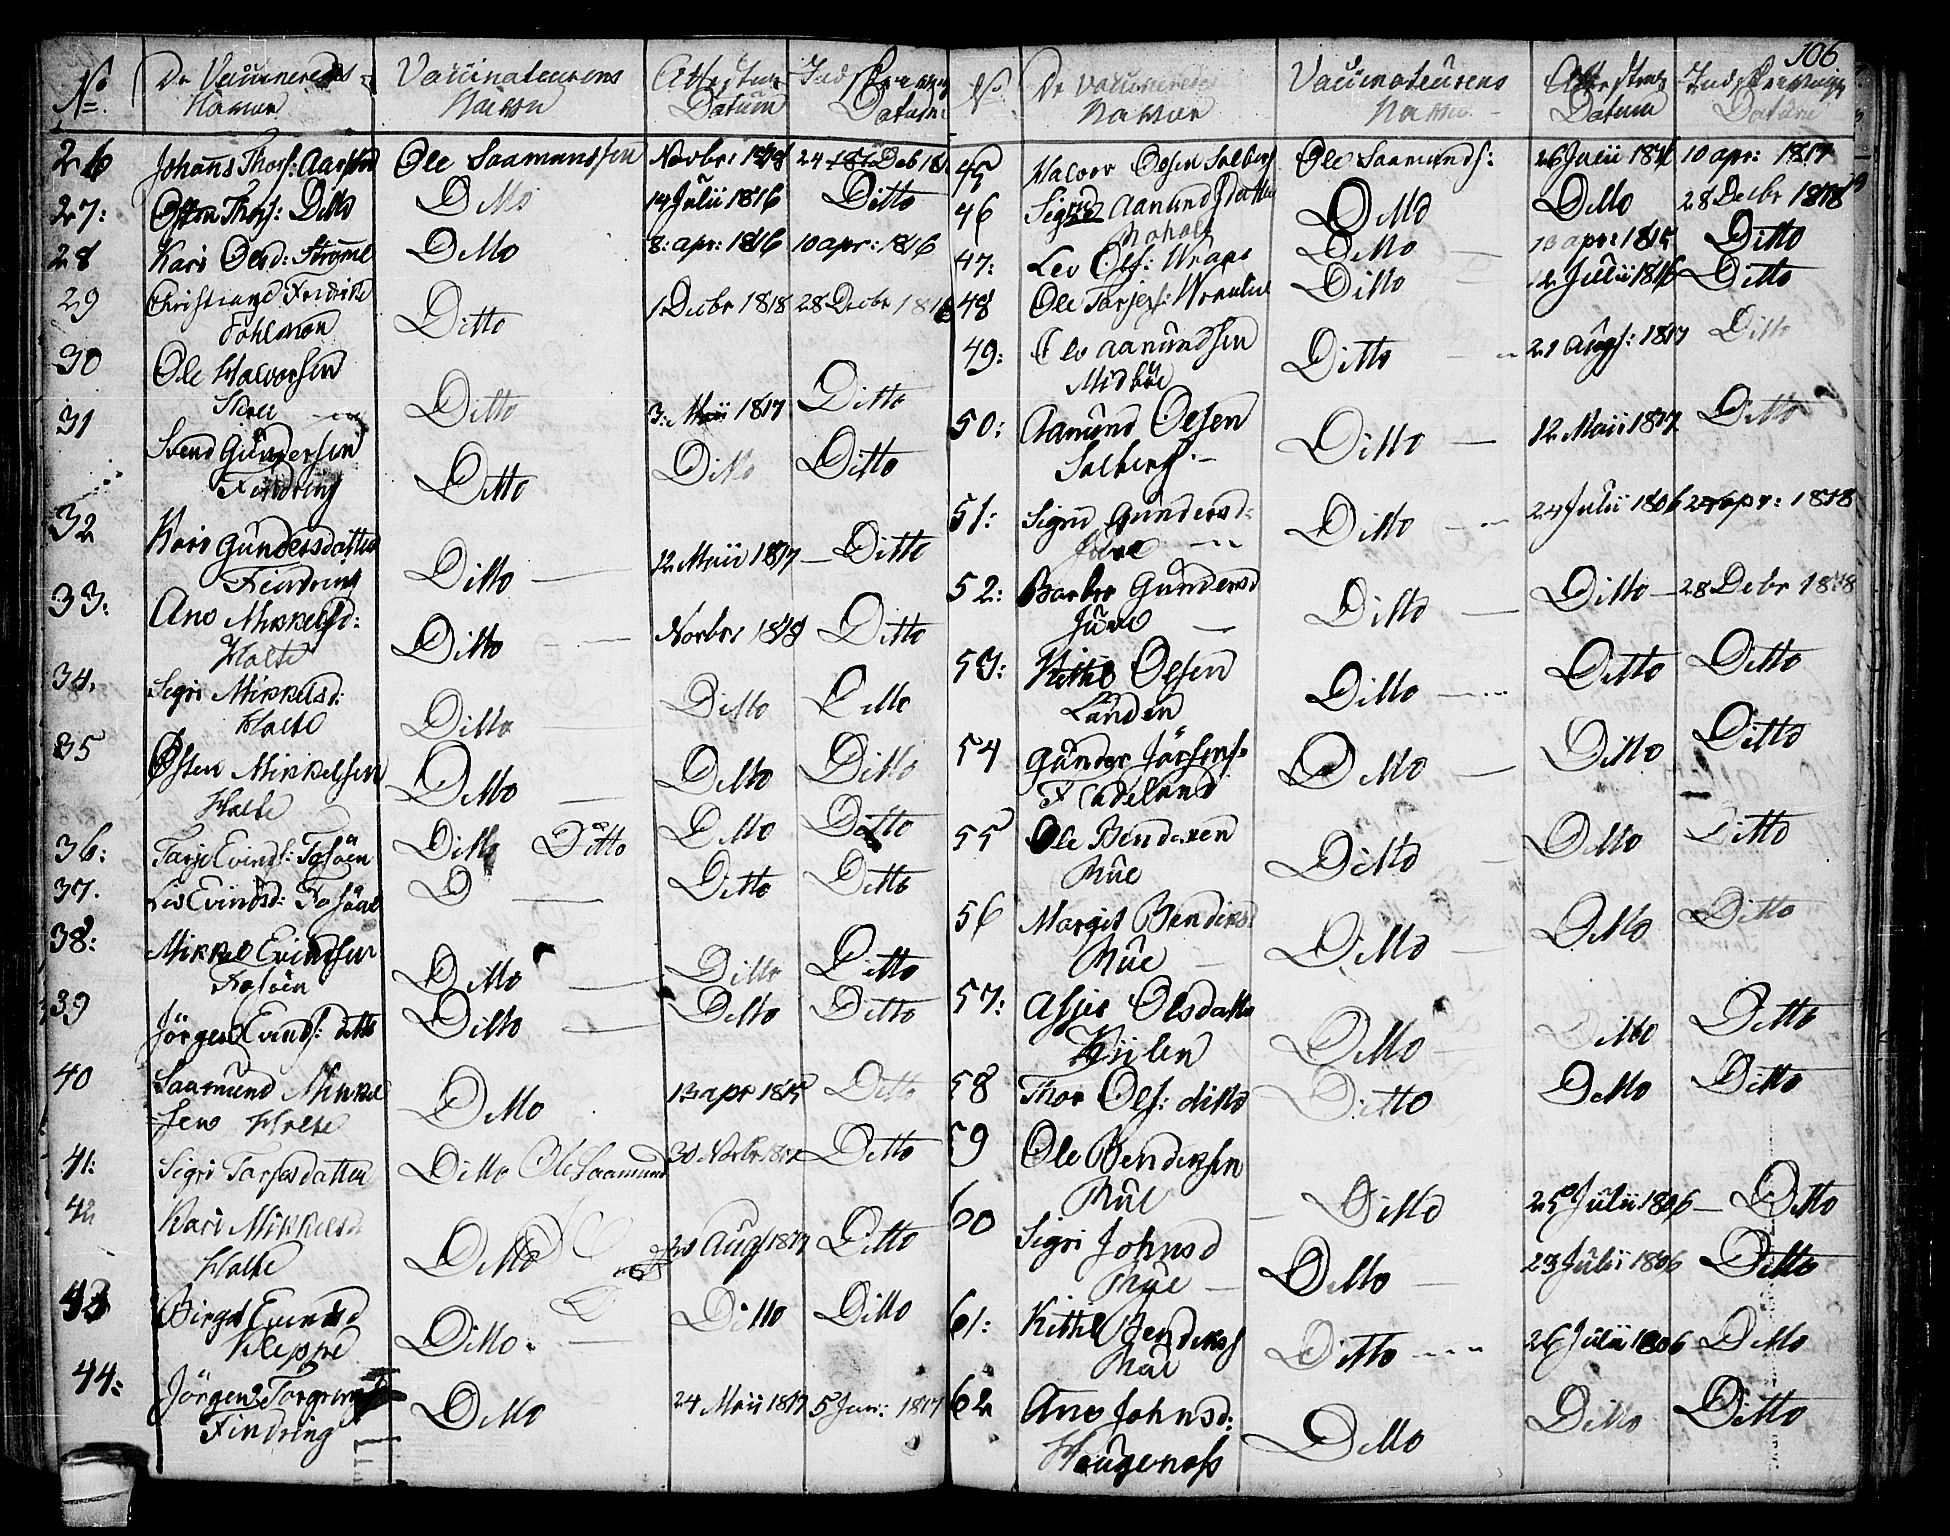 106
No De Vaccineredes Vaccinateurens Attestens Indskrevnings
Navne Navne Datum Datum
26 Johans Thors: Ole Saamundssen Novbr 24 Deb
27: Thors: Ditto Ditto 14 Julii 1816 Ditto
28 Kari Olsd: Ditto 8: apr: 1816 10 apr: 1816
29 Christiane Fredrike 1 Decbr 1818 28 Decbr 1818
Ditto
30 Ole Halvorsen
Ditto 3: Maii 1817 Ditto
31 Svend Gundersen
Findring Ditto Ditto Ditto
32 Kari Gundersdatter
Findring Ditto 12 Maii 1817 Ditto
33: Ane Mikkelsd:
Holte Ditto Novbr 1818 Ditto
34. Sigri Mikkelsd:
Holte Ditto Ditto Ditto
35 Østen Mikkelsen
Holte Ditto Ditto Ditto
36: Tarje Evinds: Ditto Ditto Ditto Ditto
37. Liv Evindsd: D Ditto Ditto
38: Mikkel Evindsen
Ditto Ditto Ditto
39 Jörgen Evinds: ditto Ditto Ditto Ditto
40 Saamund Mikkel
sen Holte Ditto 13 apr 1815 Ditto
41: Sigri Tarjesdatter Ditto Ole Saamund 30 Novbr Ditto
42 Kari Mikkelsd
Holte Ditto 21 Aug 1817 Ditto
43 Birgit Evindsd
Kleppe Ditto Ditto Ditto
44: Jörgen Torgrims
Findring Ditto 24 Maii 1817 5 Jun: 1817
No De Vaccinerede Vaccinateurens Attestens Indskrevnings
Navne Navne Datum Datum
45 Halvor Olsen Solberg Ole Saamunds: 26 Julii 1816 10 apr: 1817
46 Sigrid Aanundsdatter Ditto Ditto 28 Decbr 1818
47: Lev Ols: Ditto 13 apr: 1815 Ditto
48 Ole Tarjes: Ditto 12 Julii 1816 Ditto
49: Olv Aanundsen
Midböe Ditto 21 Augs: 1817 Ditto
50: Aanund Olsen
Solberg Ditto 12 Maii 1817 Ditto
51: Sigrid Gundersd:
Ditto 24 Julii 1806 apr: 1818
52: Barbro Gundersd
Juve Ditto Ditto 28 Debr 1818
53: Kittil Olsen
Landen Ditto Ditto Ditto
54 Gunder
Ditto Ditto Ditto
55 Ole Bendixen
Rue Ditto Ditto Ditto
56 Margit Bendixsd:
Rue Ditto Ditto Ditto
57: Olsdatter
Kiilen Ditto Ditto Ditto
58 Thor Ols: ditto Ditto Ditto Ditto
59 Ole Bendixsen
Rue Ditto 25 Julii 1806 Ditto
60 Sigri Johnsd
Rue Ditto 23 Julii 1806 Ditto
61: Kittil Bendixs
Rue Ditto 26 Julii 1806 Ditto
62 Ane Johnsd:
Haugenæss Ditto Ditto Ditto